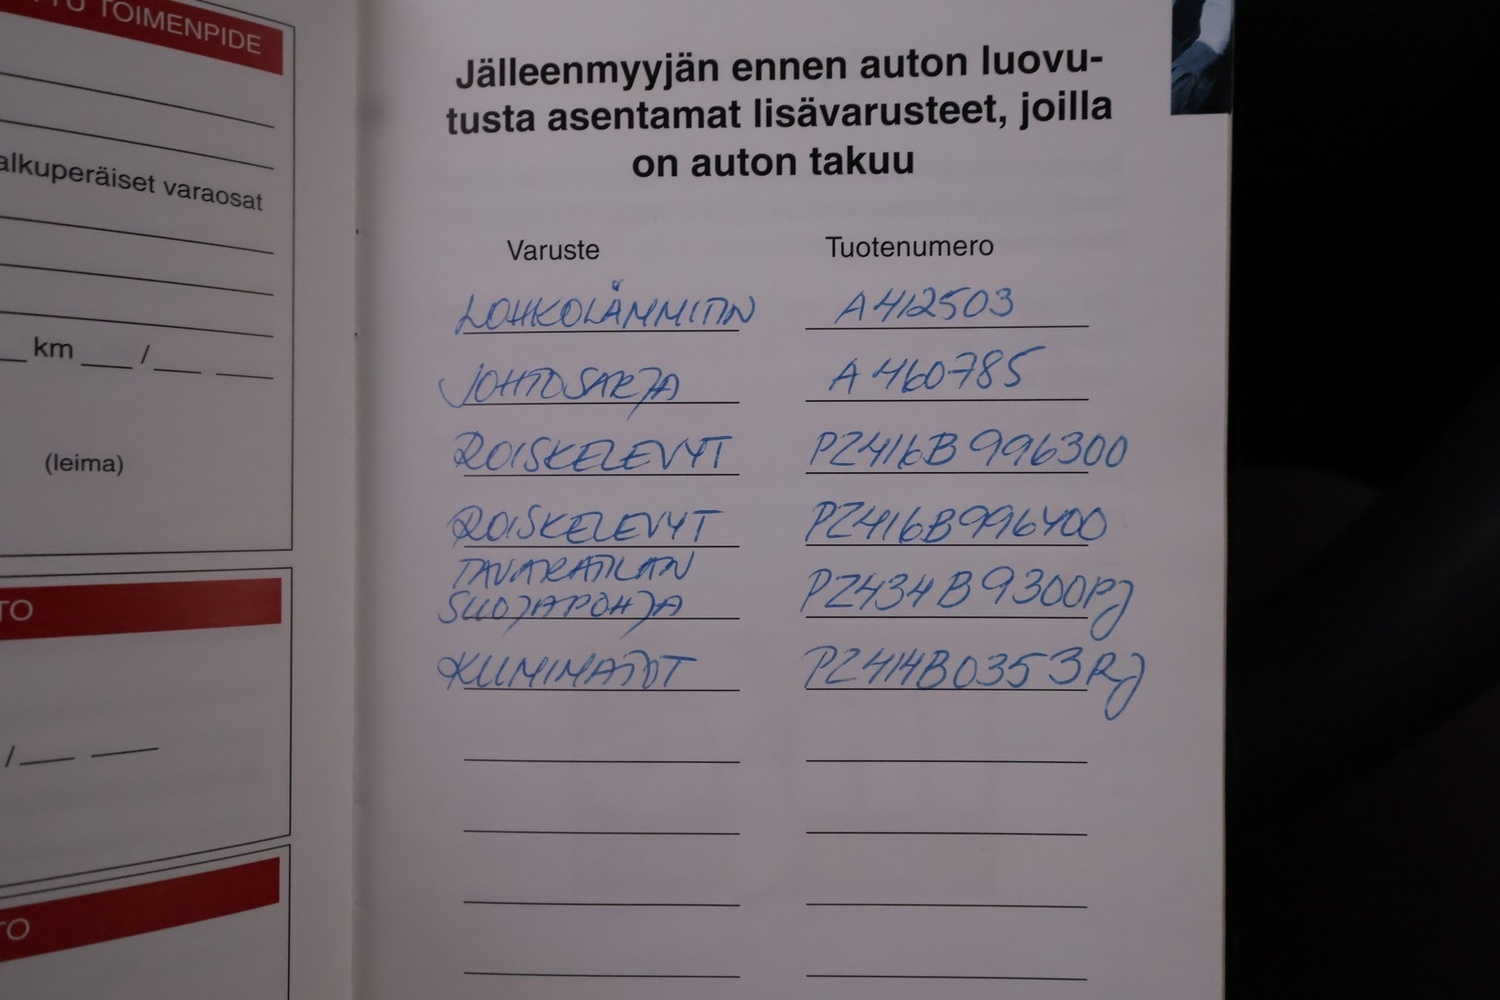 TOIMENPIDE
alkuperäiset varaosat
km /
(leima)
TO
/
TO
Jälleenmyyjän ennen auton luovu-
tusta asentamat lisävarusteet, joilla
on auton takuu
Varuste Tuotenumero
LOHKOLÄMMITIN A412503
JOHTOSARJA A460785
ROISKELEVYT PZ416B996300
ROISKELEVYT PZ416B996400
TAVARATILAN
SUOJAPOHJA PZ434B9300PJ
KUMIMATOT PZ414B0353RJ